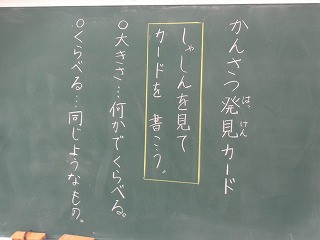 かんさつ発見カード
はっけん
しゃしんを見て
カードを書こう。
○大きさ…何かでくらべる。
○くらべる…同じようなもの。